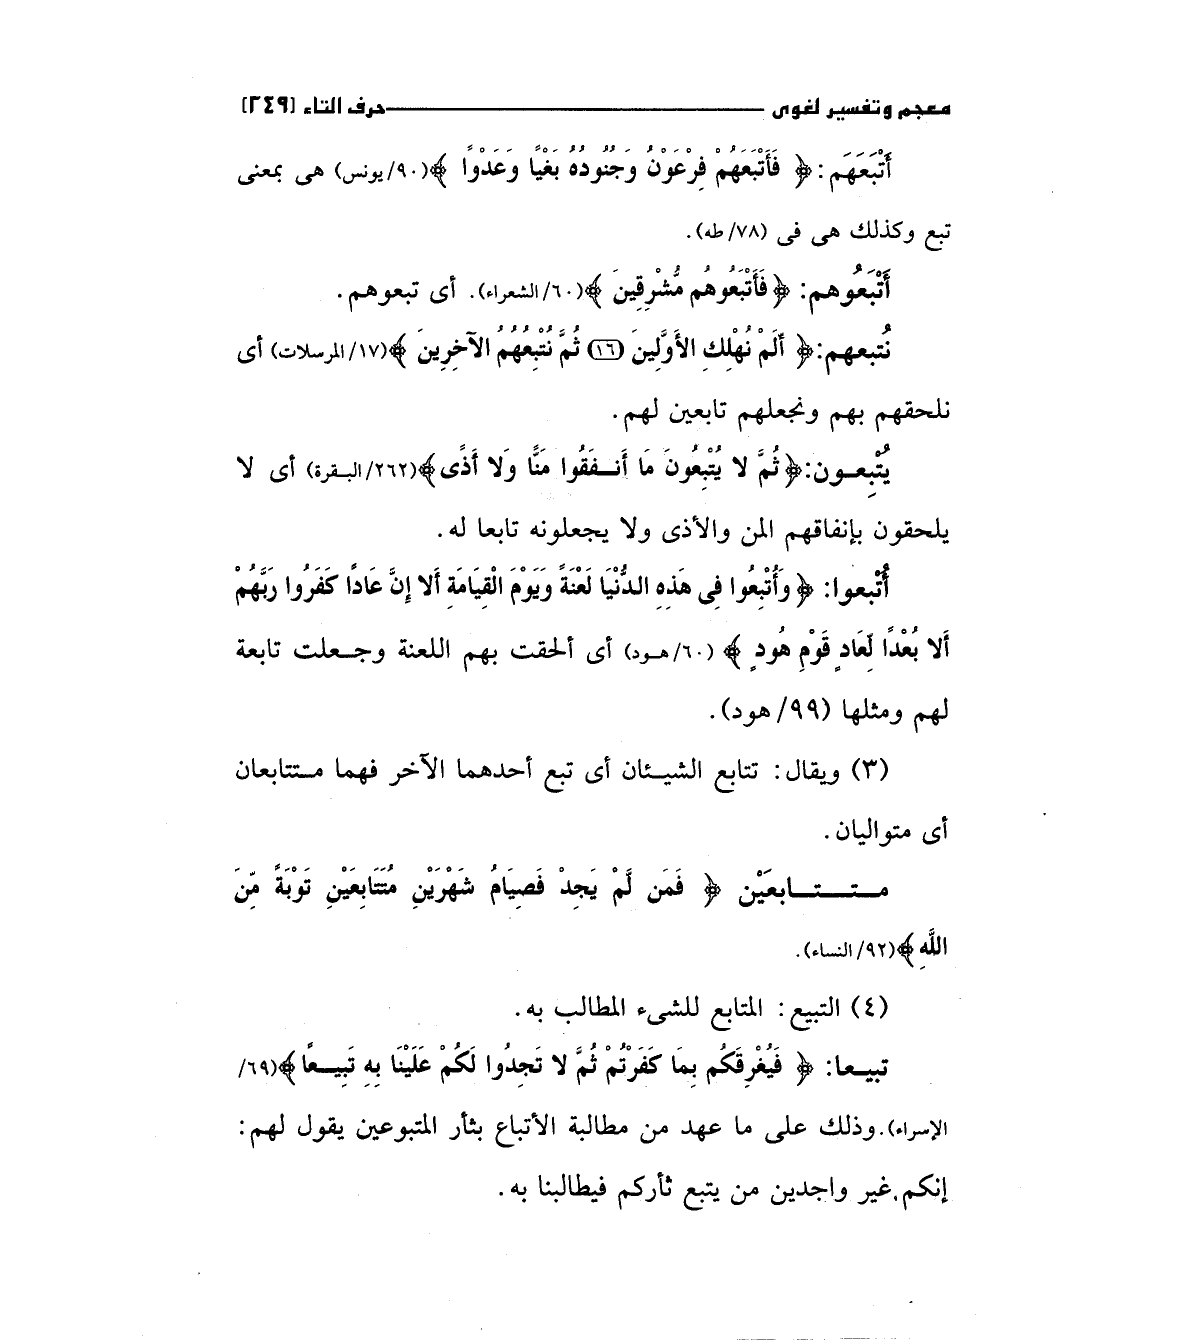 معجم وتفسير لغوى — حرف التاء [٢٤٩]
أَتْبَعَهَم: ﴿ فَأَتْبَعَهُمْ فِرْعَوْنُ وَجُنُودُهُ بَغْيًا وَعَدْوًا ﴾(٩٠/يونس) هى بمعنى
تبع وكذلك هى فى (٧٨/ طه).
أَتْبَعُوهم: ﴿ فَأَتْبَعُوهُم مُّشْرِقِينَ ﴾(٦٠/الشعراء). أى تبعوهم.
نُتبعهم:﴿ أَلَمْ نُهْلِكِ الأَوَّلِينَ (١٦) ثُمَّ نُتْبِعُهُمُ الآخِرِينَ ﴾(١٧/ المرسلات) أى
نلحقهم بهم ونجعلهم تابعين لهم.
يُتْبِعون:﴿ ثُمَّ لا يُتْبِعُونَ مَا أَنفَقُوا مَنًّا وَلا أَذًى﴾(٢٦٢/البقرة) أى لا
يلحقون بإنفاقهم المن والأذى ولا يجعلونه تابعا له.
أُتْبعوا: ﴿ وَأُتْبِعُوا فِى هَذِهِ الدُّنْيَا لَعْنَةً وَيَوْمَ الْقِيَامَةِ أَلا إِنَّ عَادًا كَفَرُوا رَبَّهُمْ
أَلا بُعْدًا لِّعَادٍ قَوْمِ هُودٍ ﴾ (٦٠/هود) أى ألحقت بهم اللعنة وجعلت تابعة
لهم ومثلها (٩٩/ هود).
(٣) ويقال: تتابع الشيئان أى تبع أحدهما الآخر فهما متتابعان
أى متواليان.
متتابعَيْن ﴿ فَمَن لَّمْ يَجِدْ فَصِيَامُ شَهْرَيْنِ مُتَتَابِعَيْنِ تَوْبَةً مِّنَ
اللَّهِ﴾(٩٢/ النساء).
(٤) التبيع: المتابع للشىء المطالب به.
تبيعا: ﴿ فَيُغْرِقَكُم بِمَا كَفَرْتُمْ ثُمَّ لا تَجِدُوا لَكُمْ عَلَيْنَا بِهِ تَبِيعًا﴾(٦٩/
الإسراء).وذلك على ما عهد من مطالبة الأتباع بثأر المتبوعين يقول لهم:
إنكم غير واجدين من يتبع ثأركم فيطالبنا به.